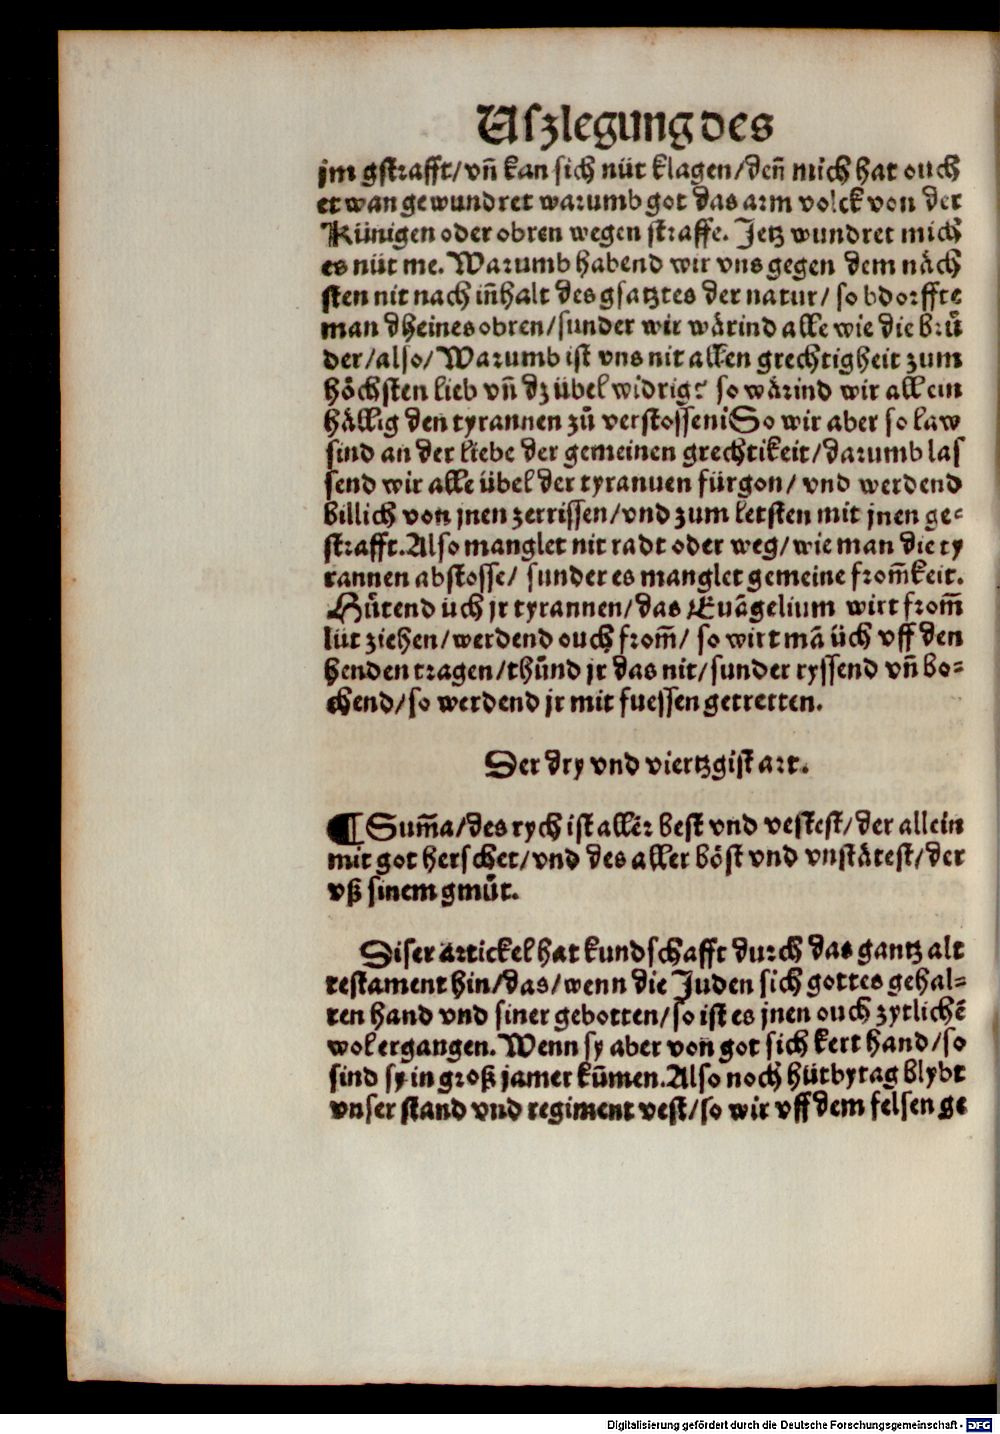 Uszlegung des
jm gstrafft/ vn̄ kan sich nüt klagen/ den̄ mich hat ouch
etwan gewundret warumb got das arm volck von der
Künigen oder obren wegen straffe. Jetz wundret mich
es nüt me. Warumb habend wir vns gegen dem näch
sten nit nach in̄halt des gsatztes der natur/ so bdorffte
man dheines obren/ sunder wir wärind alle wie die bruͤ
der/ also/ Warumb ist vns nit allen grechtigheit zum
höchsten lieb vn̄ dz übel widrig? so wärind wir all ein
hällig den tyrannen zů verstosseni So wir aber so law
sind an der liebe der gemeinen grechtikeit/ darumb las
send wir alle übel der tyranuen fürgon/ vnd werdend
billich von jnen zerrissen/ vnd zum letsten mit jnen ge-
strafft. Also manglet nit radt oder weg/ wie man die ty
rannen abstosse/ sunder es manglet gemeine from̄keit.
Huͤtend üch jr tyrannen/ das Euāgelium wirt from̄
lüt ziehen/ werdend ouch from̄/ so wirt mā üch vff den
henden tragen/ thůnd jr das nit/ sunder ryssend vn̄ bo-
chend/ so werdend jr mit fuessen getretten.
Der dry vnd viertzgist art.
¶ Sum̄a/ des rych ist aller best vnd vestest/ der allein
mit got herschet/ vnd des aller böst vnd vnstätest/ der
vß sinem gmuͤt.
Diser artickel hat kundschafft durch das gantz alt
testament hin/ das/ wenn die Juden sich gottes gehal-
ten hand vnd siner gebotten/ so ist es jnen ouch zytlichē
wol ergangen. Wenn sy aber von got sich kert hand/ so
sind sy in groß jamer kūmen. Also noch hütbytag blybt
vnser stand vnd regiment vest/ so wir vff dem felsen ge
Digitalisierung gefördert durch die Deutsche Forschungsgemeinschaft - DFG